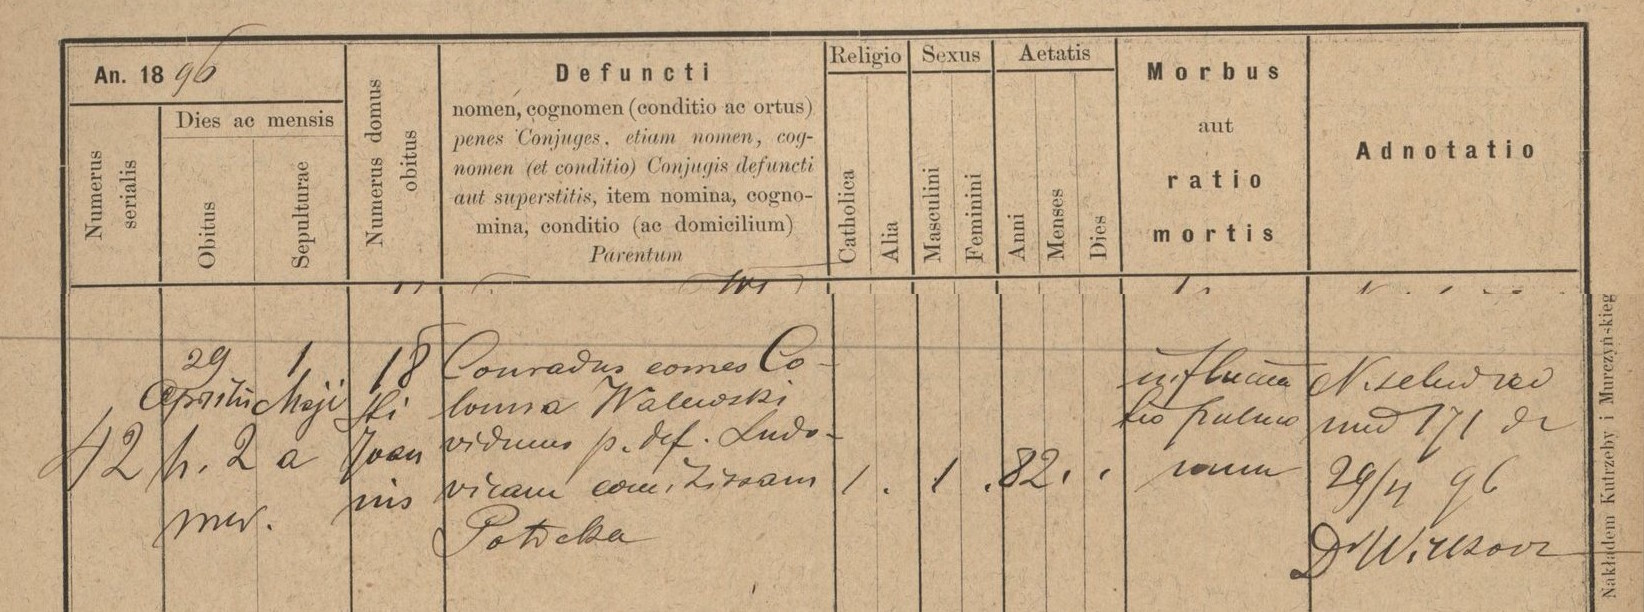 An. 1896
Numerus serialis
Dies ac mensis
Obitus
Sepulturae
Numerus domus obitus
Defuncti
nomen, cognomen (conditio ac ortus)
penes Conjuges, etiam nomen, cog-
nomen (et conditio) Conjugis defuncti
aut superstitis, item nomina, cogno-
mina, conditio (ac domicilium)
Parentum
Religio
Catholica
Alia
Sexus
Masculini
Feminini
Aetatis
Anni
Menses
Dies
Morbus
aut
ratio
mortis
Adnotatio
42
29
Aprilis
h. 2 a
mer.
1
Maji
18
Sti
Joan
nis
Conradus comes Co-
lonna Walewski
viduus p. def. Ludo-
vicam com.
Potocka
1 . 1 . 82 . .
inflamma
tio pulmo
num
171
29/4 96
Dr
Nakładem Kutrzeby i Murczyńskieg